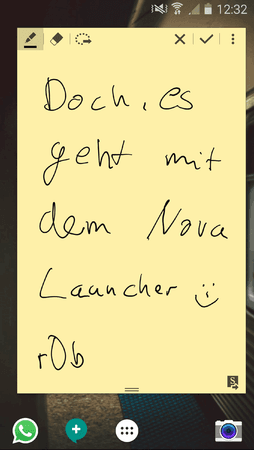 12:32
Doch, es
geht mit
dem Nova
Launcher :)
rOb